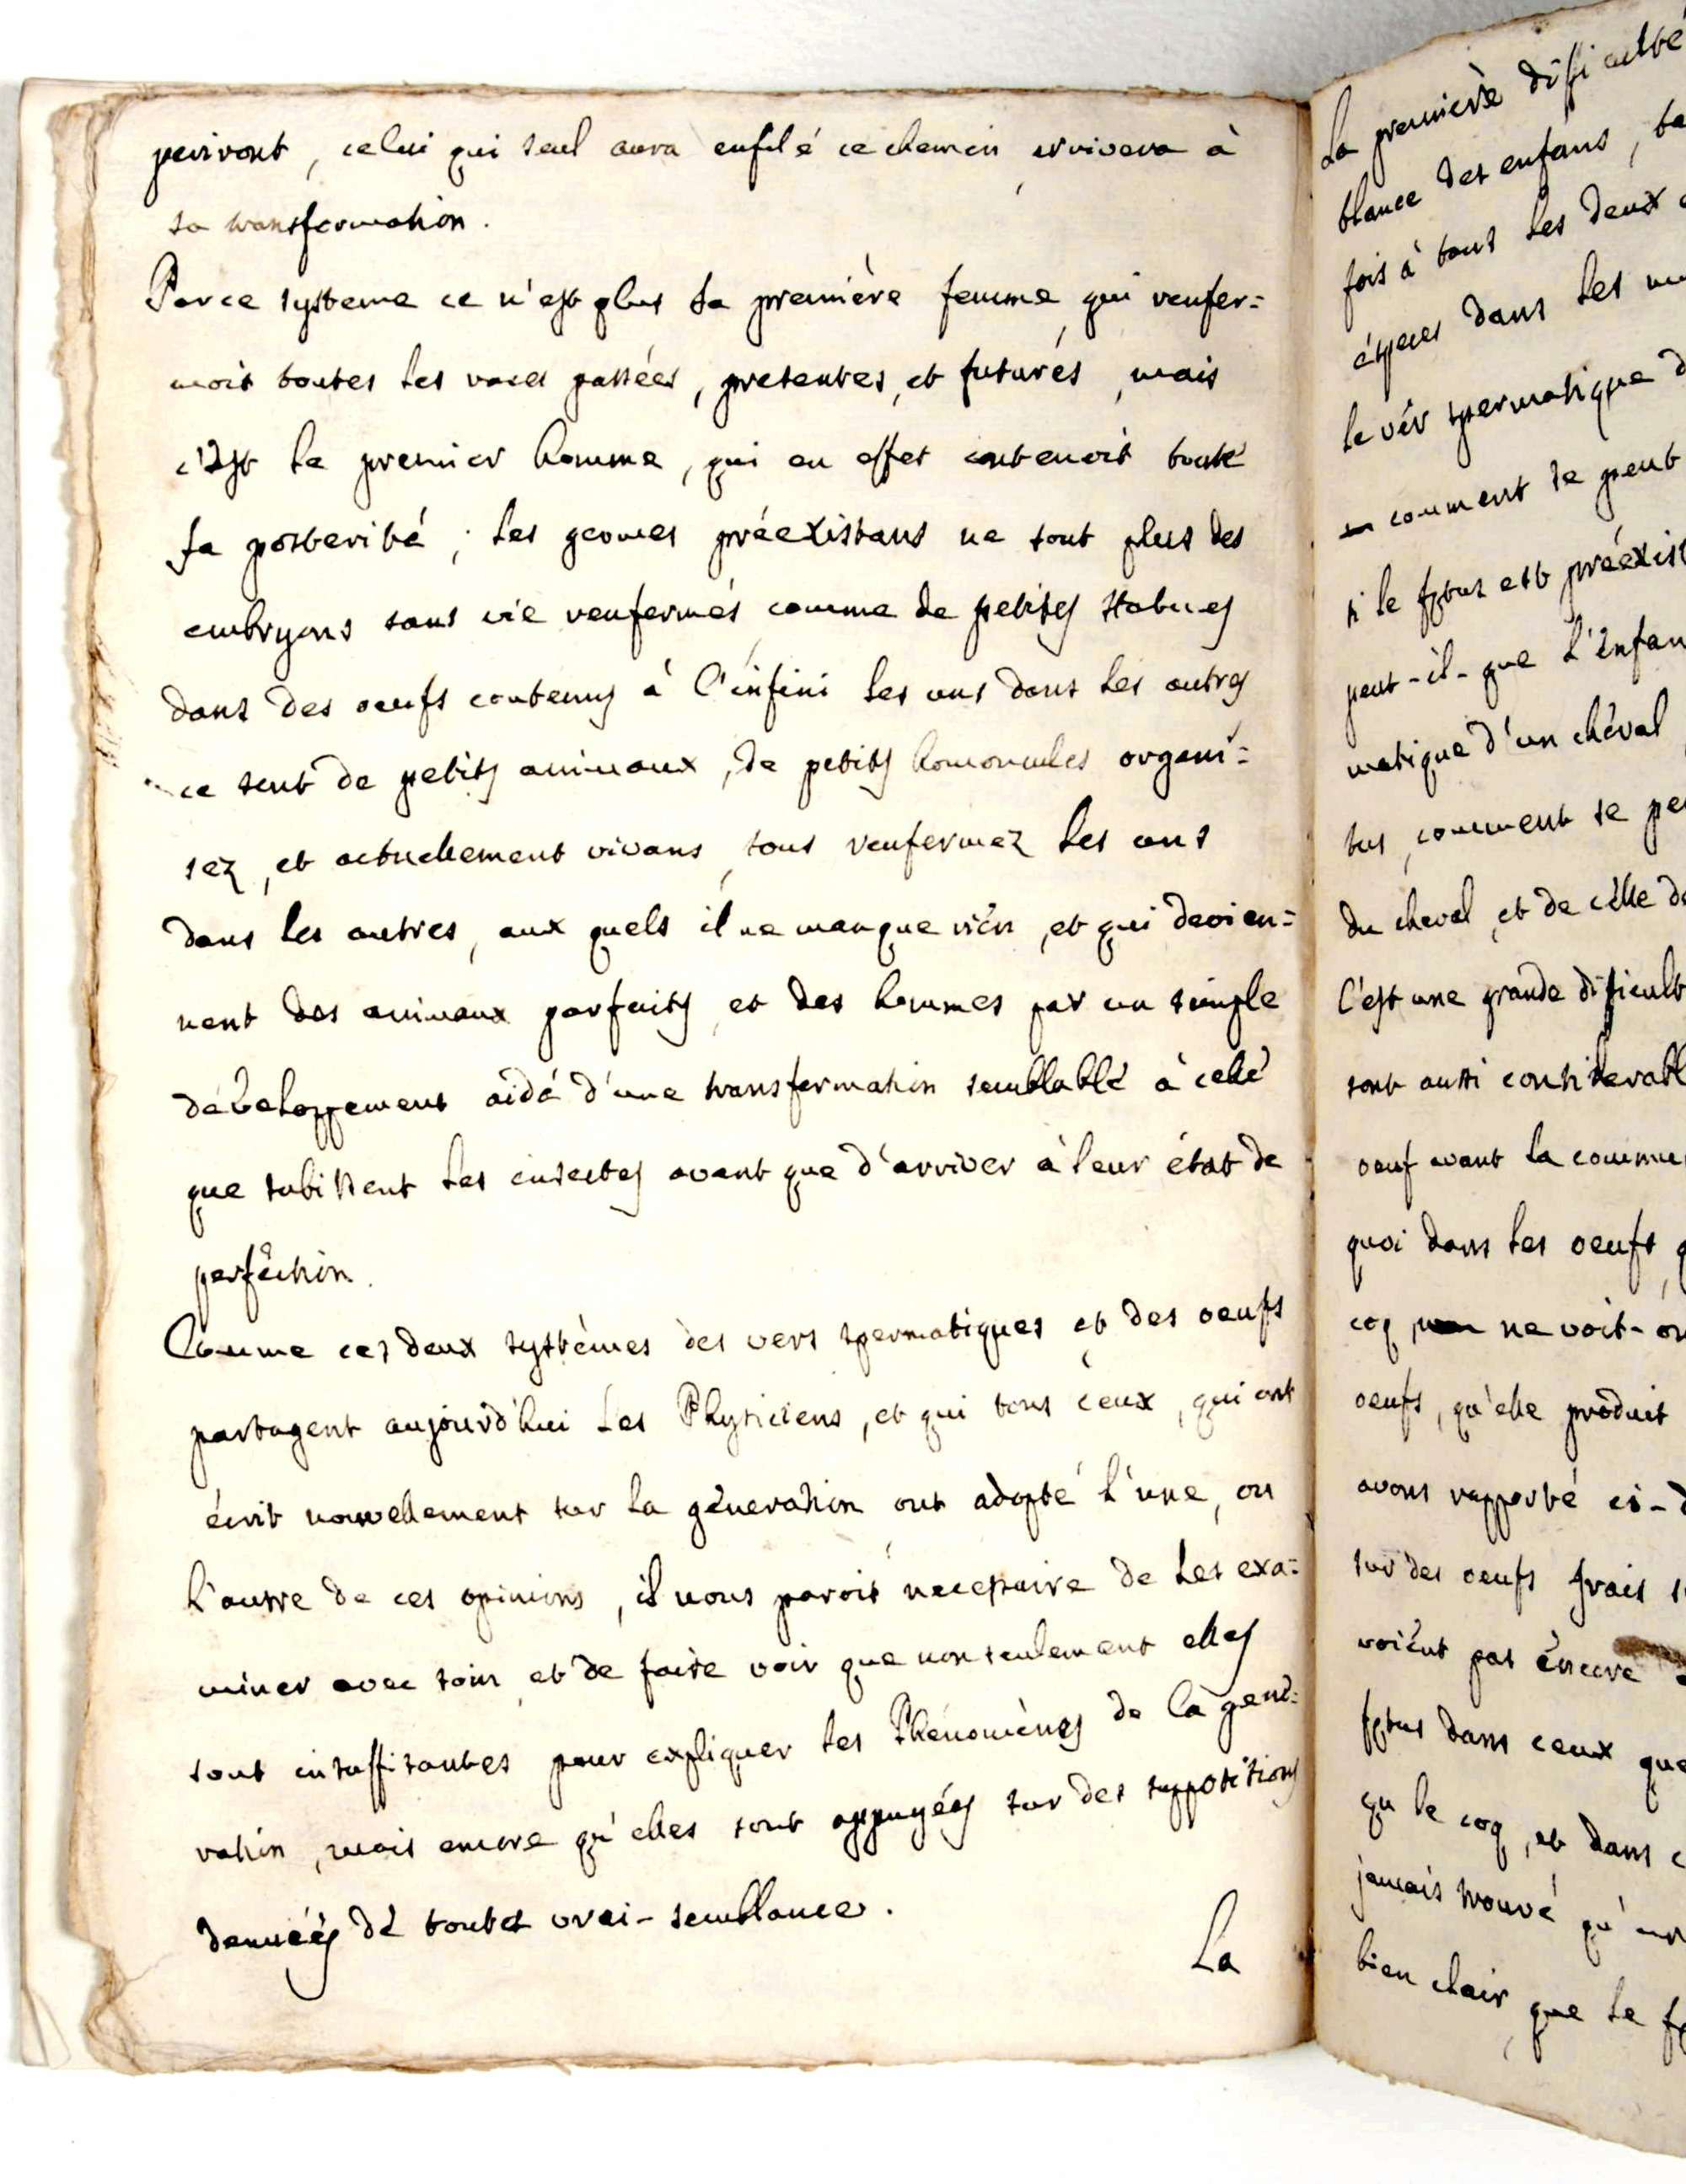 periront, celui qui seul aura enfilé ce chemin, arrivera à
sa transformation.
Par ce systeme ce n'est plus la première femme, qui renfer=
moit toutes les races passées, presentes, et futurés, mais
c'est le premier homme, qui en effet contenoit touté
sa posterité; les germes préexistans ne sont plus des
embryons sans vie renfermés comme de petites statues
dans des oeufs contenus à l'infini les uns dans les autres
ce sont de petits animaux, de petits homoncules organi=
sez, et actuellement vivans, tous renfermez les uns
dans les autres, aux quels il ne manque rién, et qui devien=
nent des animaux parfaits, et des hommes par un simple
développement aidé d'une transformation semblablé à cellé
que subissent les insectes avant que d'arriver à leur état de
perfection.
Comme ces deux systèmes des vers spermatiques, et des oeufs
partagent aujourd'hui les Physiciens, et qui tous ceux, qui ont
écrit nouvellement sur la géneration ont adopté l'une, ou
l'autre de ces opinions, il nous paroit necessaire de les exa=
miner avec soin, et de faire voir que non seulement elles
sont insuffisantes pour expliquer les Phénomènes de la gené=
ration, mais encore qu'elles sont appuyées sur des suppositions
denuées dé toutes vrai-semblance.
La
La premierè difficulté
blance des enfans,
fois à tous les deux
éspeces dans les
le vér spermatique
comment se peut
si le fętus est préexist
peut-il-que l'énfan
matique d'un chéval
tus, comment se
du cheval, et de célle
C'est une grande difficult
sont aussi considerabl
oeuf avant la commu
quoi dans les oeufs,
coq, ne voit-on
oeufs, qu'elle produit
avons rapporté ci-d
sur des oeufs frais
voiént pas éncore
fętus dans ceux que
qu le coq, et dans
jamais trouvé qu'
bien clair, que le